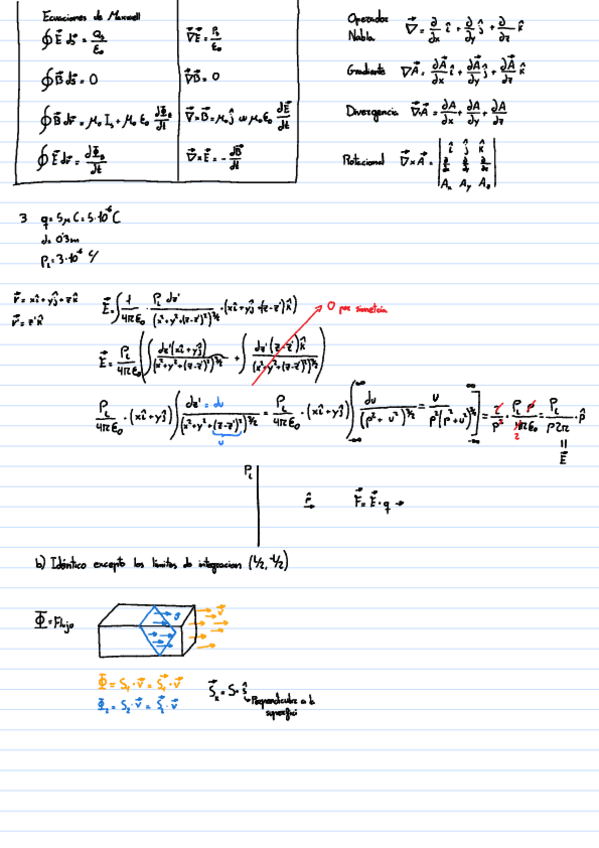 Ecuaciones de Maxwell
∮ E⃗ dr⃗ = Q_s/ε₀   ∇⃗E⃗ = ρ_s/ε₀
∮ B⃗ ds⃗ = 0   ∇⃗B⃗ = 0
∮ B⃗ dr⃗ = μ₀ I_s + μ₀ ε₀ dΦ_e/dt   ∇⃗×B⃗ = μ₀ j⃗ + μ₀ ε₀ dE⃗/dt
∮ E⃗ dr⃗ = dΦ_B/dt   ∇⃗×E⃗ = - dB⃗/dt
Operador Nabla ∇⃗ = ∂/∂x î + ∂/∂y ĵ + ∂/∂z k̂
Gradiente ∇A⃗ = ∂A⃗/∂x î + ∂A⃗/∂y ĵ + ∂A⃗/∂z k̂
Divergencia ∇⃗A⃗ = ∂A/∂x + ∂A/∂y + ∂A/∂z
Rotacional ∇⃗×A⃗ = | î ĵ k̂ |
| ∂/∂x ∂/∂y ∂/∂z |
| Ax Ay Az |
3 q = 5μC = 5·10⁻⁶ C
d = 0'3m
ρ_L = 3·10⁻⁶ C/
r⃗ = xî+yĵ+zk̂
r⃗ = z'k̂
E⃗ = ∫ 1/4πε₀ · ρ_L dz'/(x²+y²+(z-z')²)^3/2 · (xî+yĵ+(z-z')k̂)
0 por simetria
E⃗ = ρ_L/4πε₀ (∫ dz'(xî+yĵ)/(x²+y²+(z-z')²)^3/2 + ∫ dz'(z-z')k̂/(x²+y²+(z-z')²)^3/2)
ρ_L/4πε₀ · (xî+yĵ) ∫ dz' = du/(x²+y²+(z-z')²)^3/2 = ρ_L/4πε₀ · (xî+yĵ) ∫_-∞^∞ du/(ρ²+u²)^3/2 = u/ρ²(ρ²+u²)^½ ]_-∞^∞ = 2/ρ² · ρ_L ρ/4πε₀ = ρ_L/ρ2π · ρ̂
u
2
=
E⃗
ρ_L
r̂ →
F⃗ = E⃗·q →
b) Idéntico excepto los limites de integracion (L/2, -L/2)
Φ⃗ = Flujo
v⃗
v⃗
Φ⃗ = S₁·v⃗ = S⃗₁·v⃗
Φ₂ = S₂·v⃗ = S⃗₂·v⃗
S⃗₂ = S·ŝ
Perpendicular a la
superfici